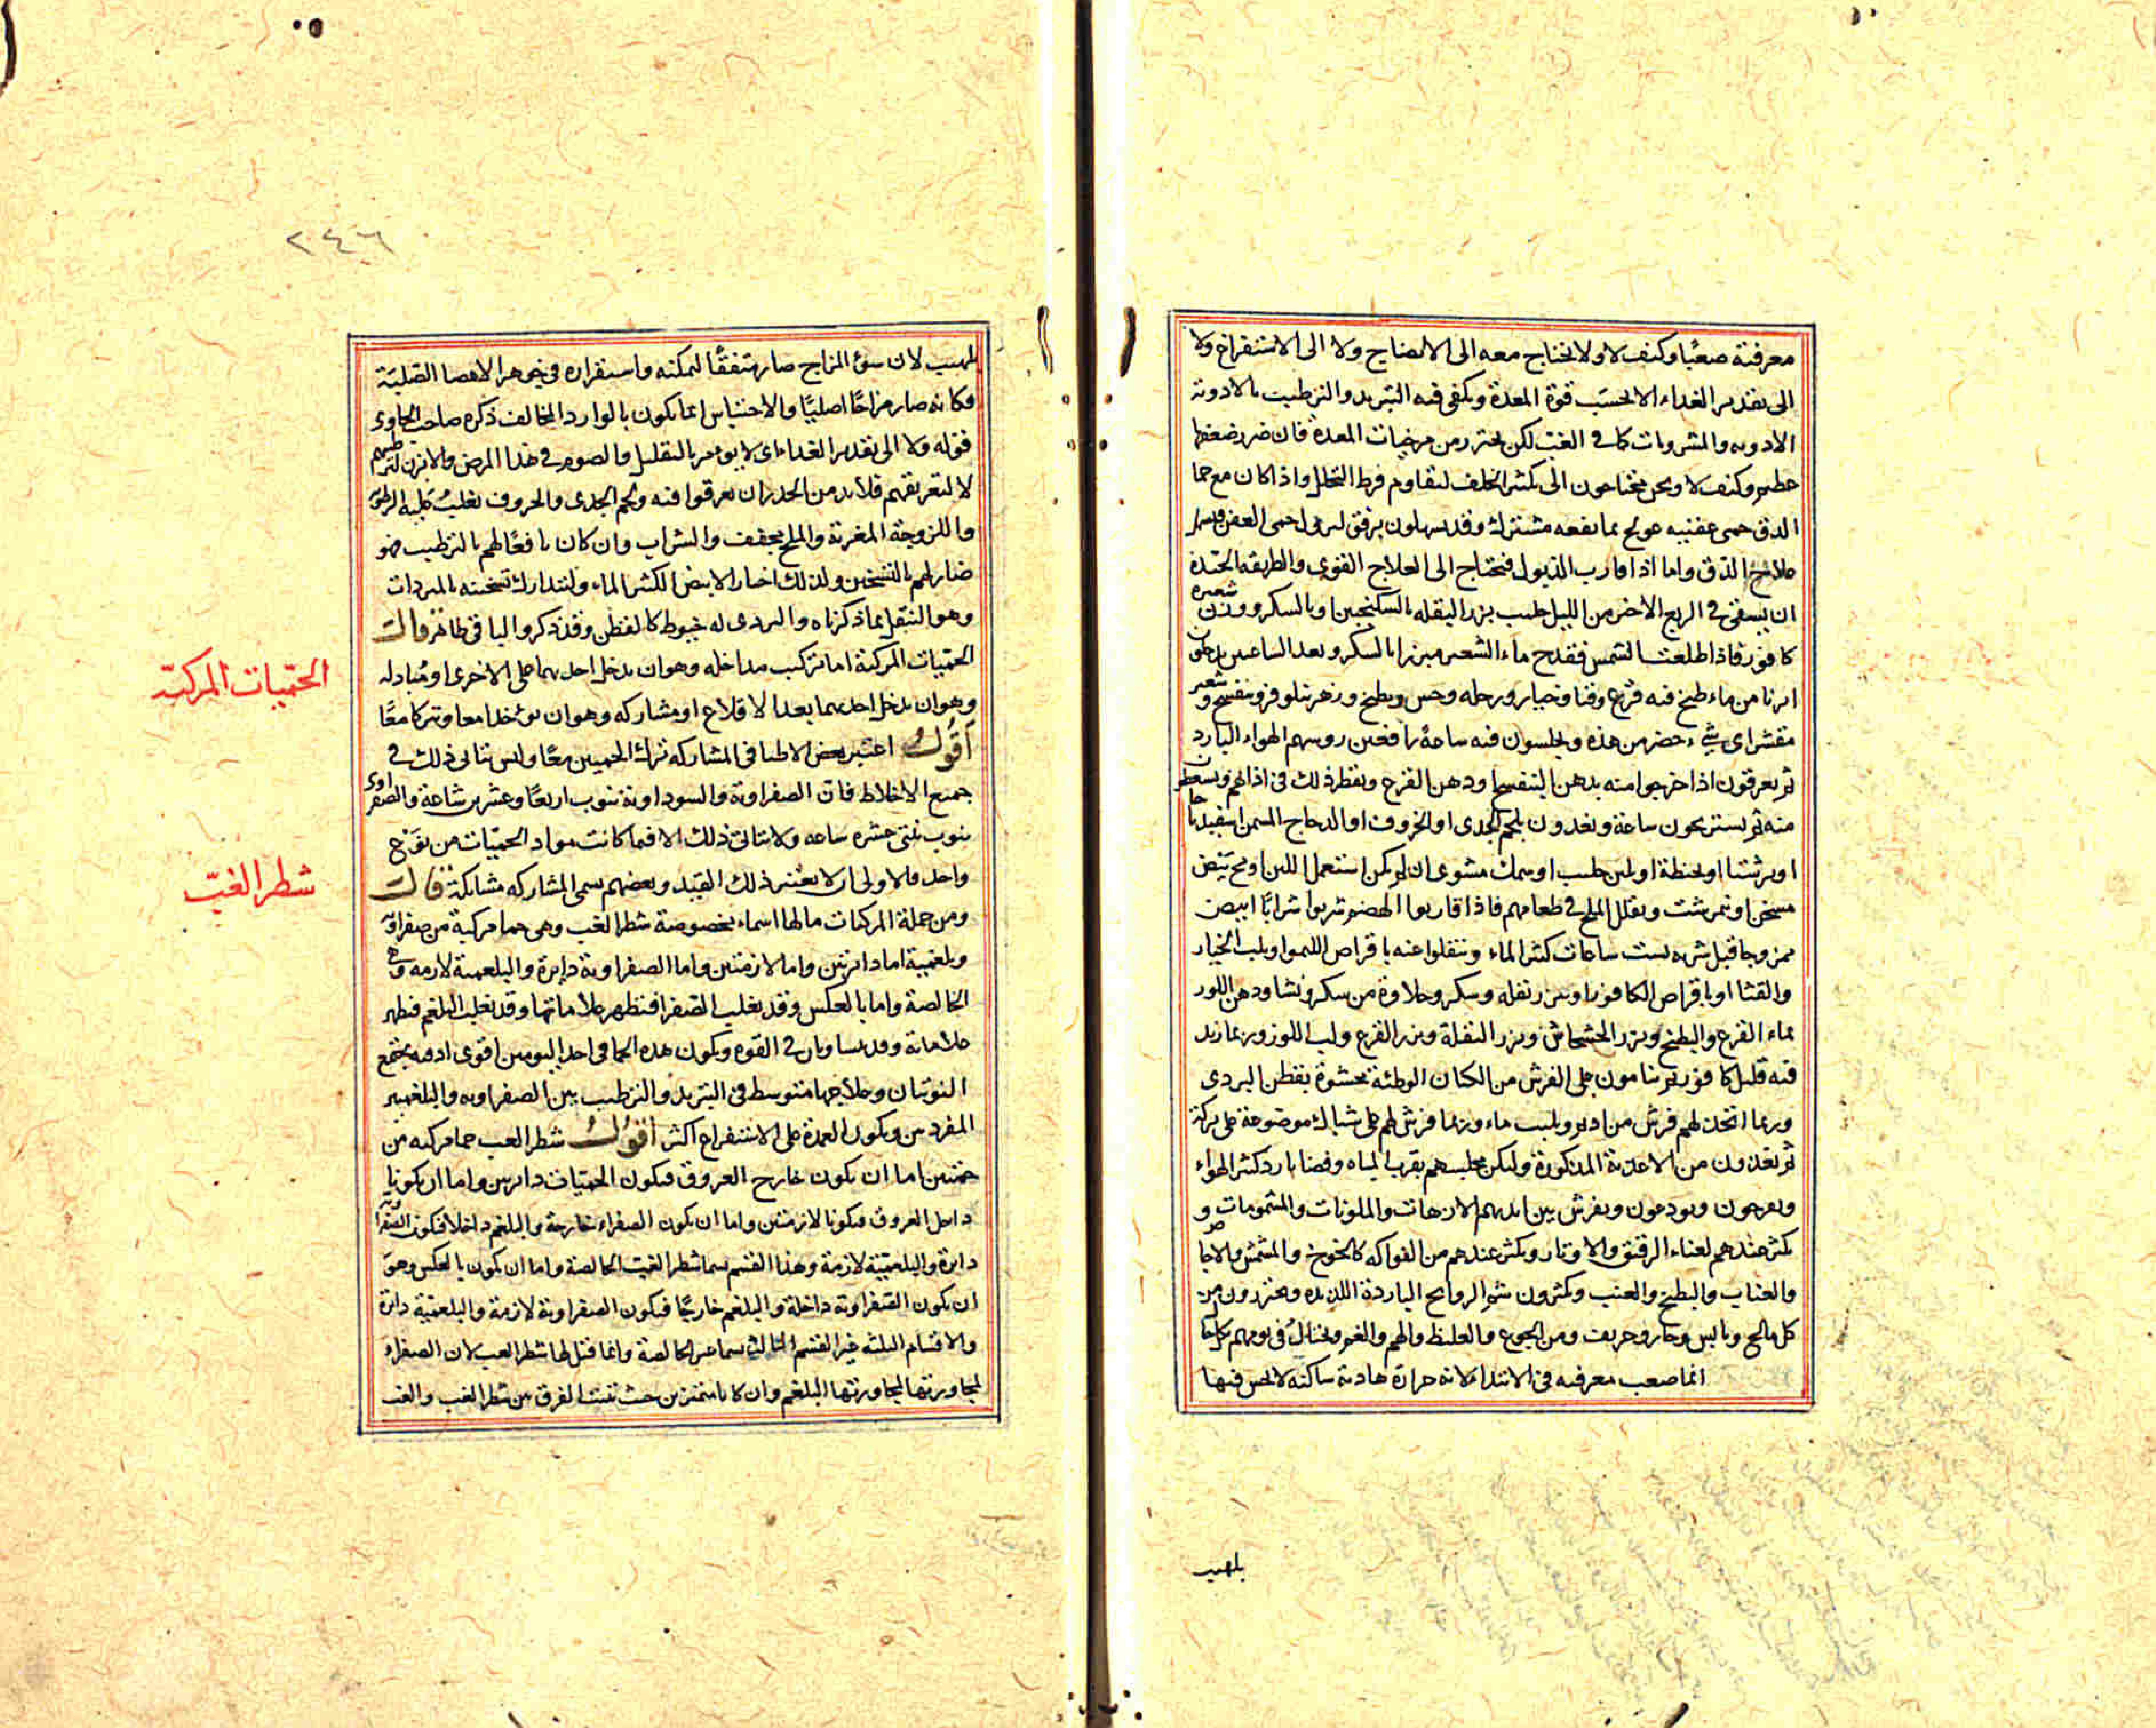 معرفته صعبًا وكيف لا ولا يحتاج معه الى الانضاج ولا الى الاستفراغ ولا
الى تقدير الغداء الا بحسب قوة المعدة ويكفى فيه التبريد والترطيب بالادوية
الادويه والمشروبات كما فى الغب لكن يحترز من مرخيات المعدة فان ضرر ضعفها
عظيم وكيف لا ونحن محتاجون الى تكثير الخلف لتقاوم فرط التحلل واذا كان مع حما
الدق حمى عفنيه عولج بما نفعه مشترك وقد يسهلون برفق لتزول حمى العفن
علاج الدق واما اذا قارب الذبول فيحتاج الى العلاج القوى والطريقه الجيدة
ان يسقى فى الربع الاخير من الليل حليب بزر البقله بالسكنجبين او بالسكر ووزن شعيره
كافور فاذا طلعت الشمس فقدح ماء الشعير مبزرا بالسكر وبعد الساعتين يدخلون
ابزنا من ماء طبخ فيه قرع وقثا وخيار ورجله وخس وبطيخ وزهر نيلوفر وبنفسج وشعير
مقشر اى شئ حضر من هذه ويجلسون فيه ساعة رافعين روسهم الهواء البارد
ثم يعرقون اذا خرجوا منه بدهن البنفسج او دهن القرع ويقطر ذلك فى اذانهم ويسعطون
منه ثم يستريحون ساعة ويغدون بلحم الجدى او الخروف او الدجاج المسمن اسفيدباجا
او برشتا او بحنطة او لبن حليب او سمك مشوى ان لم يكن استعمل اللبن او مح بيض
مسخن او نيمرشت ويقلل الملح فى طعامهم فاذا قاربوا الهضم شربوا شرابًا ابيض
ممزوجا قبل شربه بست ساعات كثير الماء وتنقلوا عنه باقراص الليموا وبلب الخيار
والقثا او باقراص الكافور او ببزر بقله وسكر وحلاوة من سكر ونشا ودهن اللوز
بماء القرع والبطيخ وبزر الخشخاش وبزر البقلة وبزر القرع ولب اللوز وربما زيد
فيه قليل كافور ثم ينامون على الفرش من الكتان الوطئة محشوة بقطن البردى
وربما اتخذ لهم فرش من ادم ويلبب ماء وربما فرش لهم على شباك موضوعة على بركة
ثم يغدون من الاغدية المذكورة وليكن مجلسهم بقرب المياه وفضا بارد كثير الهواء
ويفرحون ويودعون ويفرش بين ايديهم الازهات والملونات والمشمومات و
يكثر عندهم لغناء الرقيق والاوتار ويكثر عندهم من الفواكه كالخوخ والمشمش والاجاص
والعناب والبطيخ والعنب ويكثرون شم الروايح الباردة اللذيذه ويحترزون من
كل مالح ويابس وحار وحريف ومن الجوع والغليظ والهم والغم ويحتال فى نومهم كل
انما صعب معرفيه فى الابتداء لانه حرارة هادية ساكنه لا يحس فيها
بلهيب
٢٤٦
بلهيب لان سوء المزاج صار متفقًا لتمكنه واستقراره فى جوهر الاعضا الصلبة
فكانه صار مزاجًا اصليًا والاحساس انما يكون بالوارد المخالف ذكره صاحب الحاوى
قوله ولا الى تقدير الغداء اى لا يومر بالتقليل والصوم فى هذا المرض والابزن لترطيبهم
لا لتعريقهم فلا بد من الحذر ان يعرقوا فيه ولحم الجدى والخروف يغلب عليه الرطوبة
واللزوجة المغرية والملح مجفف والشراب وان كان نافعًا لهم بالترطيب فهو
ضار لهم بالتسخين ولذلك اختار الابيض الكثير الماء وليتدارك تسخينه بالمبردات
وهو التنقل بما ذكرناه والبردى له خيوط كالقطن وقد ذكر والباقى ظاهر قال
الحميات المركبة اما تركيب مداخله وهو ان يدخل احديهما على الاخرى او مبادله
وهو ان يدخل احديهما بعد الاقلاع او مشاركه وهو ان يوخذا معا ويتركا معًا
اقول اعتبر بعض الاطبا فى المشاركه ترك الحميين معًا وليس يتاتى ذلك فى
جميع الاخلاط فان الصفراوية والسوداوية تنوب اربعًا وعشرين ساعة والصفراوى
ينوب ثنتى عشره ساعه ولا يتاتى ذلك الا فيما كانت مواد الحميات من نوع
واحد فالاولى ان لا يعتبر ذلك القيد وبعضهم يسمى المشاركه مشابكة قال
ومن جملة المركبات مالها اسماء مخصوصة شطر الغب وهى حما مركبة من صفراوية
وبلغمية اما دايرتين واما لازمتين واما الصفراوية دايرة والبلغمية لازمه وهى
الخالصة واما بالعكس وقد يغلب الصفرا فتظهر علاماتها وقد يغلب البلغم فتظهر
علاماته وقد يتساويان فى القوه ويكون هذه الحما فى احد اليومين اقوى اذ فيه يجتمع
النوبتان وعلاجها متوسط فى التبريد والترطيب بين الصفراويه والبلغميه
المفردتين ويكون العمدة على الاستفراغ اكثر اقول شطر الغب حما مركبه من
حميين اما ان يكون خارج العروق فيكون الحميات دايرتين واما ان يكونا
داخل العروق فيكونا لازمتين واما ان يكون الصفراء خارجة والبلغم داخلا فيكون الصفراوية
دايرة والبلغمية لازمة وهذا القسم يسما شطر الغب الخالصة واما ان يكون بالعكس وهو
ان يكون الصفراوية داخلة والبلغم خارجًا فيكون الصفراوية لازمة والبلغمية دايرة
والاقسام الثلثه غير القسم الثالث يسما غير الخالصة وانما قيل لها شطر الغب لان الصفراء
لمجاورتها البلغم وان كانا متميزين حيث تثبت الفرق بين شطر الغب والغب
الحميات المركبة
شطر الغب